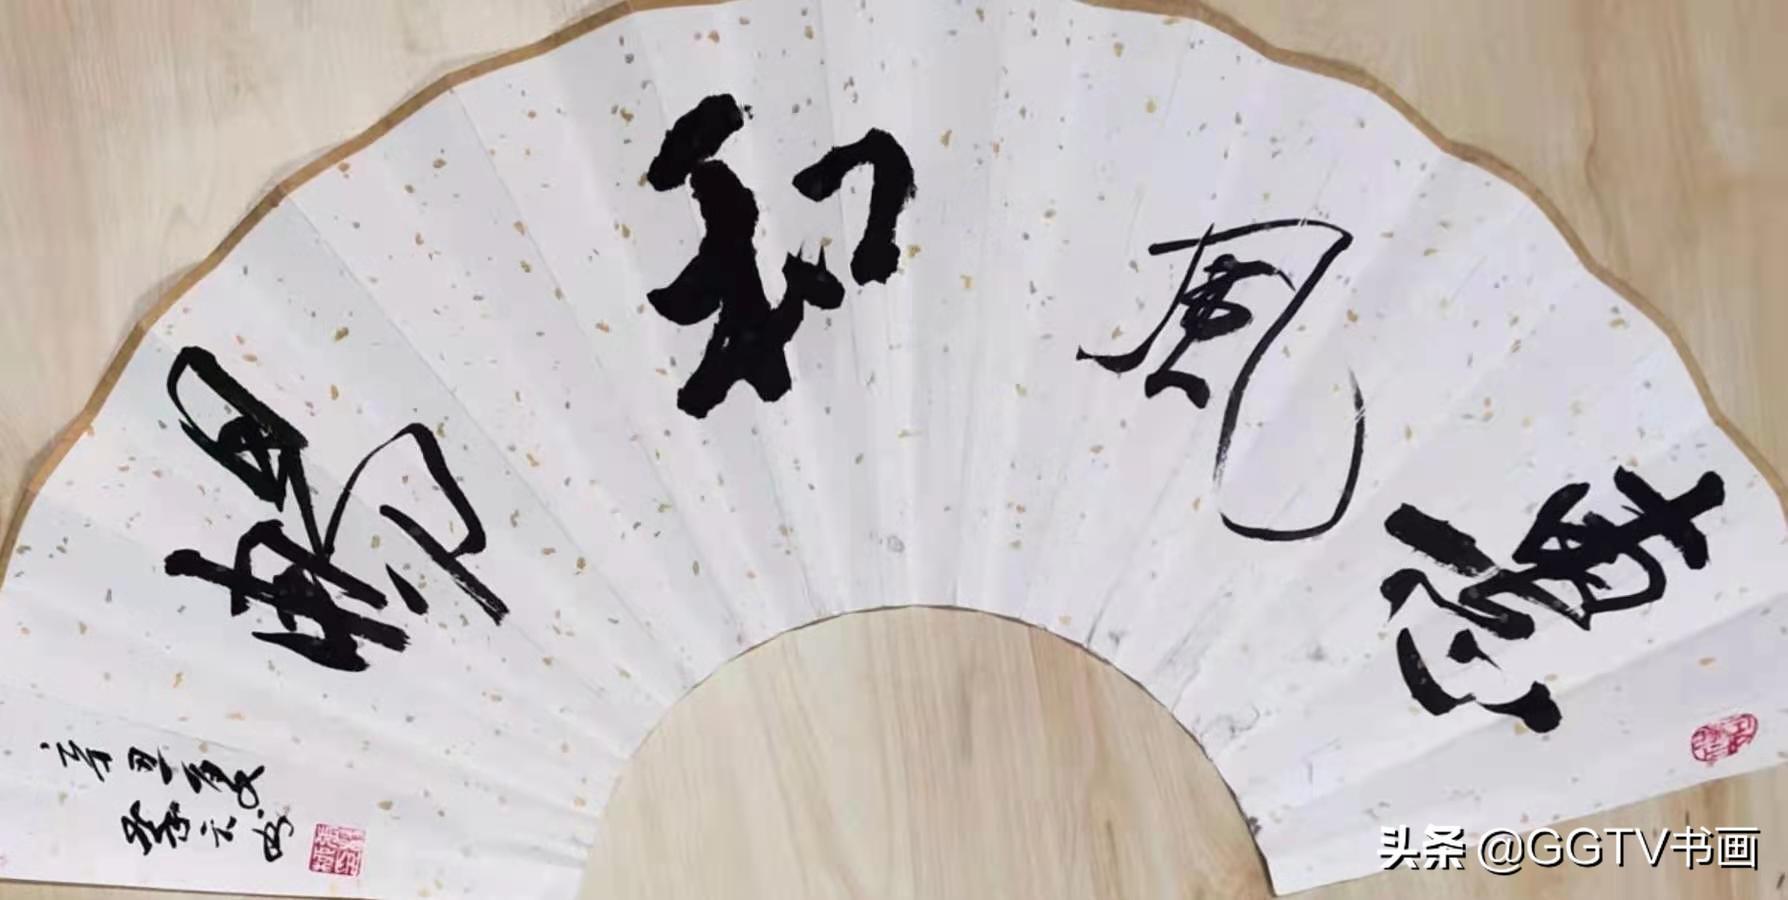 惠風和暢
辛丑夏
头条 @GGTV书画